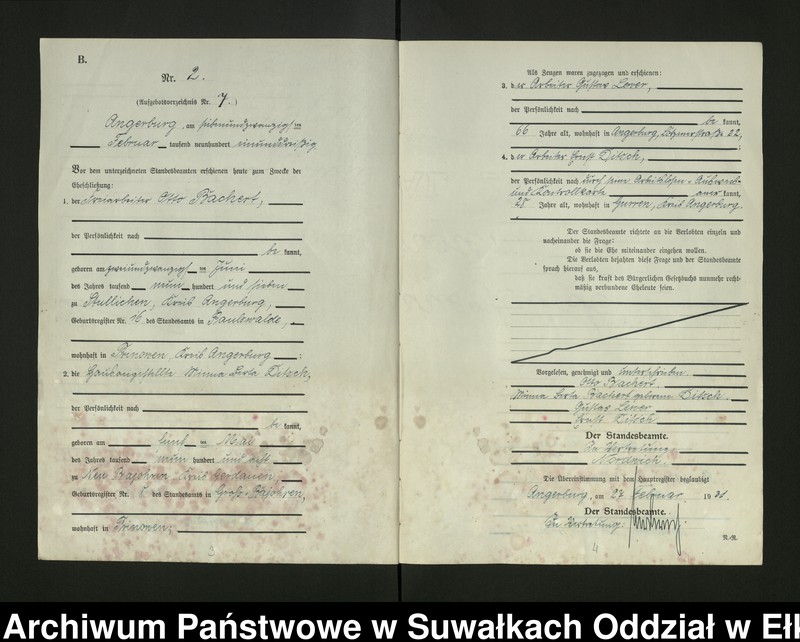 B.
Nr. 2.
(Aufgebotsverzeichnis Nr. 7.)
Angerburg, am siebenundzwanzigsten
Februar tausend neunhundert einunddreißig
Vor dem unterzeichneten Standesbeamten erschienen heute zum Zwecke der
Eheschließung:
1. der Otto Bachert,
der Persönlichkeit nach
be kannt,
geboren am zweiundzwanzigsten Juni
des Jahres tausend neun hundert und sieben
zu Stullichen, Kreis Angerburg,
Geburtsregister Nr. 16 des Standesamts in Paulswalde,
wohnhaft in Prinowen, Kreis Angerburg;
2. die Hausangestellte Minna Berta Ditsch,
der Persönlichkeit nach
be kannt,
geboren am Mai
des Jahres tausend neun hundert und acht
zu Neu Bajohren, Kreis Gerdauen,
Geburtsregister Nr. 8 des Standesamts in Groß-Bajohren,
wohnhaft in Prinowen;
3
Als Zeugen waren zugezogen und erschienen:
3. der Arbeiter Gustav
der Persönlichkeit nach
be kannt,
66 Jahre alt, wohnhaft in Angerburg, Lötzenerstraße 22,
4. der Arbeiter Ernst Ditsch,
der Persönlichkeit nach durch seine Arbeitslosen-Ausweis-
und Kontrollkarte aner kannt,
28 Jahre alt, wohnhaft in Gurren, Kreis Angerburg.
Der Standesbeamte richtete an die Verlobten einzeln und
nacheinander die Frage:
ob sie die Ehe miteinander eingehen wollen.
Die Verlobten bejahten diese Frage und der Standesbeamte
sprach hierauf aus,
daß sie kraft des Bürgerlichen Gesetzbuchs nunmehr recht-
mäßig verbundene Eheleute seien.
Vorgelesen, genehmigt und unterschrieben
Otto Bachert.
Minna Berta Bachert geborene Ditsch.
Gustav
Ernst Ditsch.
Der Standesbeamte.
In Vertretung
Die Übereinstimmung mit dem Hauptregister beglaubigt
Angerburg, am 27. Februar 1931.
Der Standesbeamte.
In Vertretung:
4
N.-R.
Archiwum Państwowe w Suwałkach Oddział w Eł